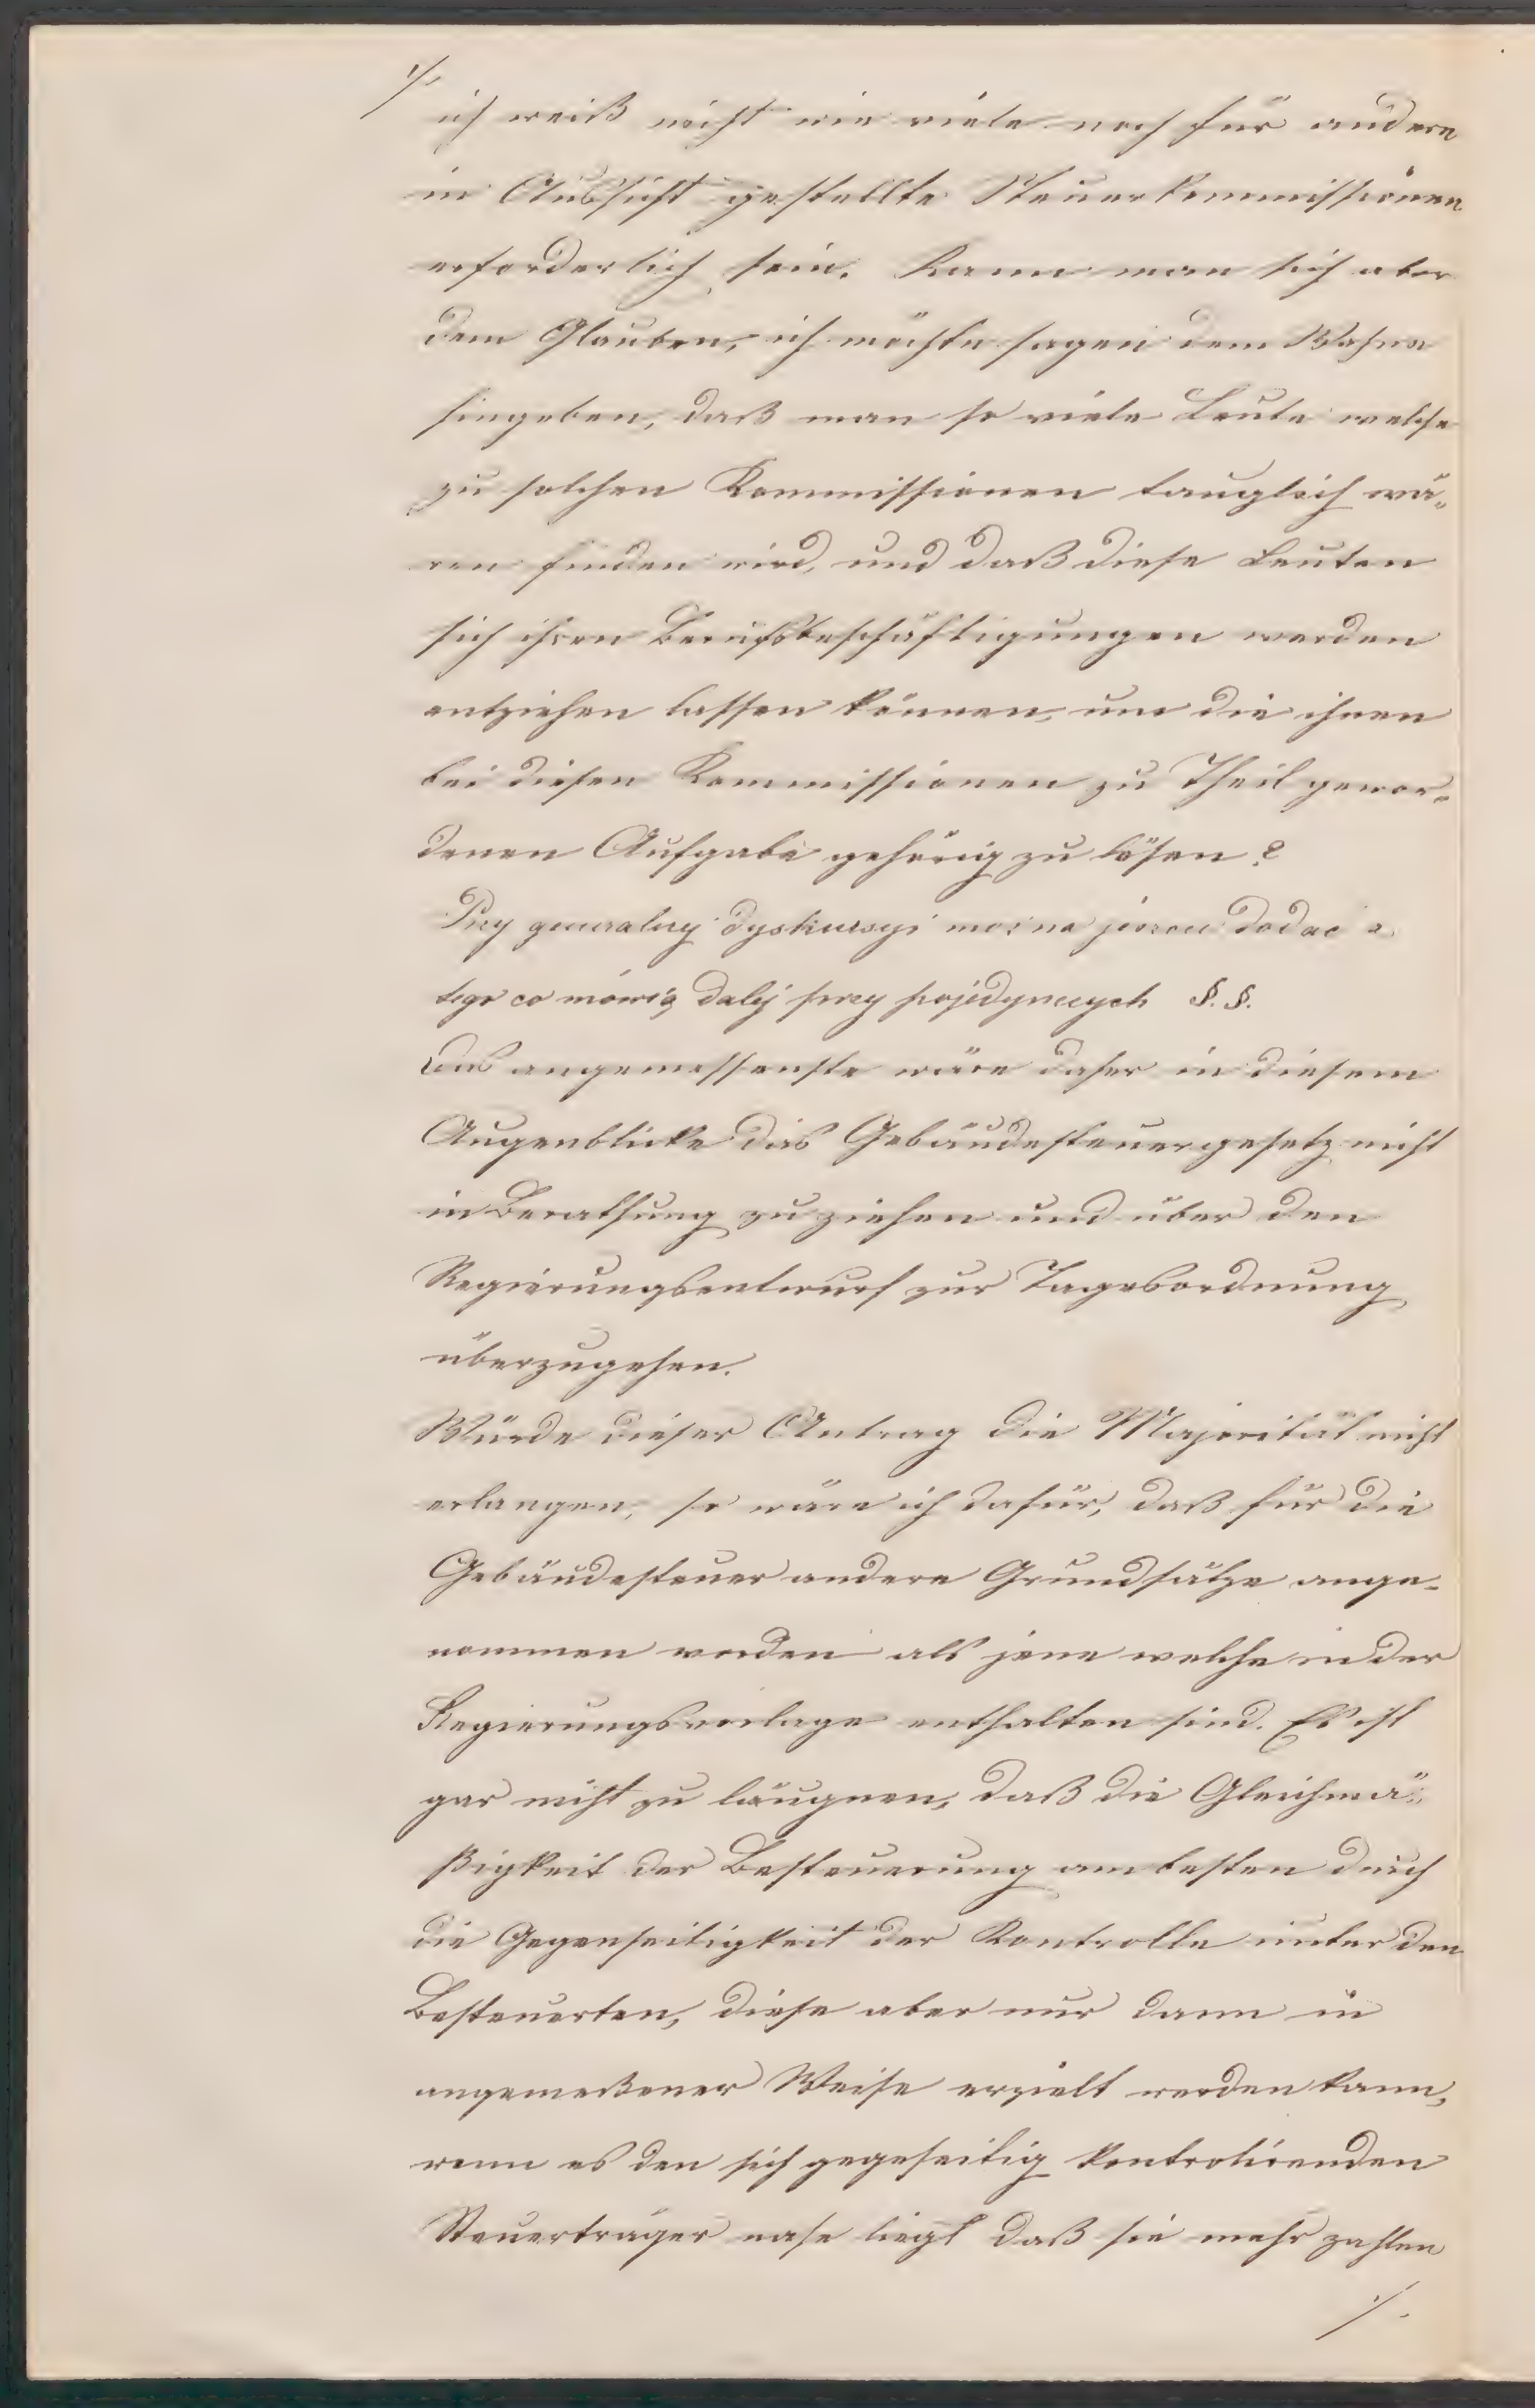 ./.
ich weiß nicht wie viele noch für andere
in Aussicht gestellte Steuerkommissionen
erforderlich sein. Kann man sich aber
dem Glauben, ich möchte sagen dem Wahne
hingeben, daß man so viele Leute welche
zu solchen Kommissionen tauglich wä-
ren finden wird, und daß diese Leuten
sich ihren Berufsbeschäftigungen werden
entziehen lassen können, um die ihnen
bei diesen Kommissionen zu Theil gewor-
denen Aufgabe gehörig zu lösen?
Przy generalnej dyskussyi można jeszcze dodać z
tego co mówię dalej przy pojedynczych §.§.
Das angemessenste wäre daher in diesem
Augenblicke das Gebäudesteuergesetz nicht
in Berathung zu ziehen und über den
Regierungsentwurf zur Tagesordnung
überzugehen.
Würde dieser Antrag die Majorität nicht
erlangen, so wäre ich dafür, daß für die
Gebäudesteuer andere Grundsätze ange-
nommen werden als jene welche in der
Regierungsvorlage enthalten sind. Es ist
gar nicht zu läugnen, daß die Gleichmä-
ßigkeit der Besteuerung am besten durch
die Gegenseitigkeit der Kontrolle unter den
Besteuerten, diese aber nur dann in
angemeßener Weise erzielt werden kann,
wenn es den sich gegeseitig kontrolirenden
Steuerträger nahe liegt daß sie mehr zahlen
./.